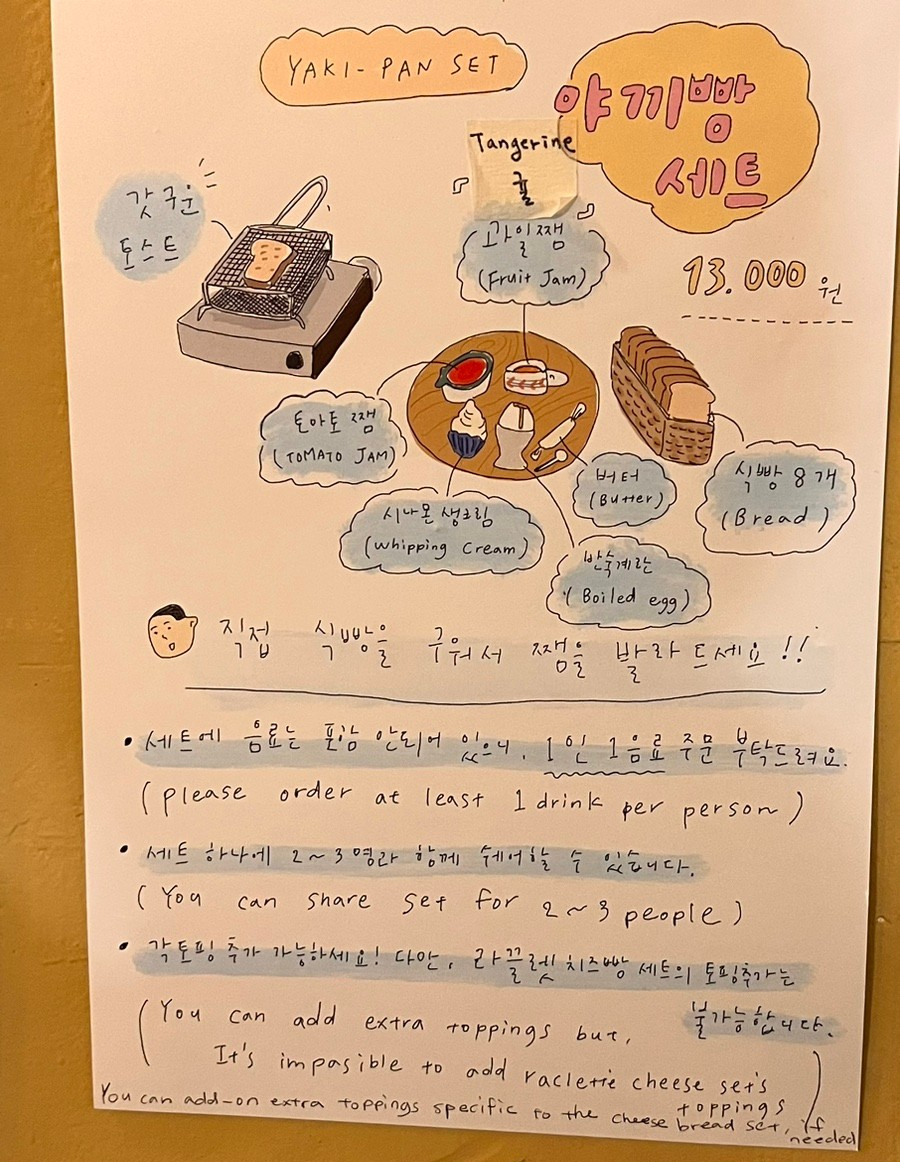 YAKI-PAN SET
야끼빵
세트
Tangerine
귤
갓 구운
토스트
과일쨈
(Fruit Jam)
13.000 원
토마토 쨈
(TOMATO JAM)
버터
(Butter)
식빵 8개
(Bread)
시나몬 생크림
(Whipping Cream)
반숙계란
(Boiled egg)
직접 식빵을 구워서 쨈을 발라 드세요!!
• 세트에 음료는 포함 안되어 있으니, 1인 1음료 주문 부탁드려요.
(please order at least 1 drink per person)
• 세트 하나에 2~3명과 함께 쉐어할 수 있습니다.
(You can share set for 2~3 people)
• 각토핑 추가 가능하세요! 다만, 라끌렛 치즈빵 세트의 토핑추가는
불가능합니다.
(You can add extra toppings but,
It's impasible to add raclette cheese set's
toppings)
You can add-on extra toppings specific to the cheese bread set, if
needed